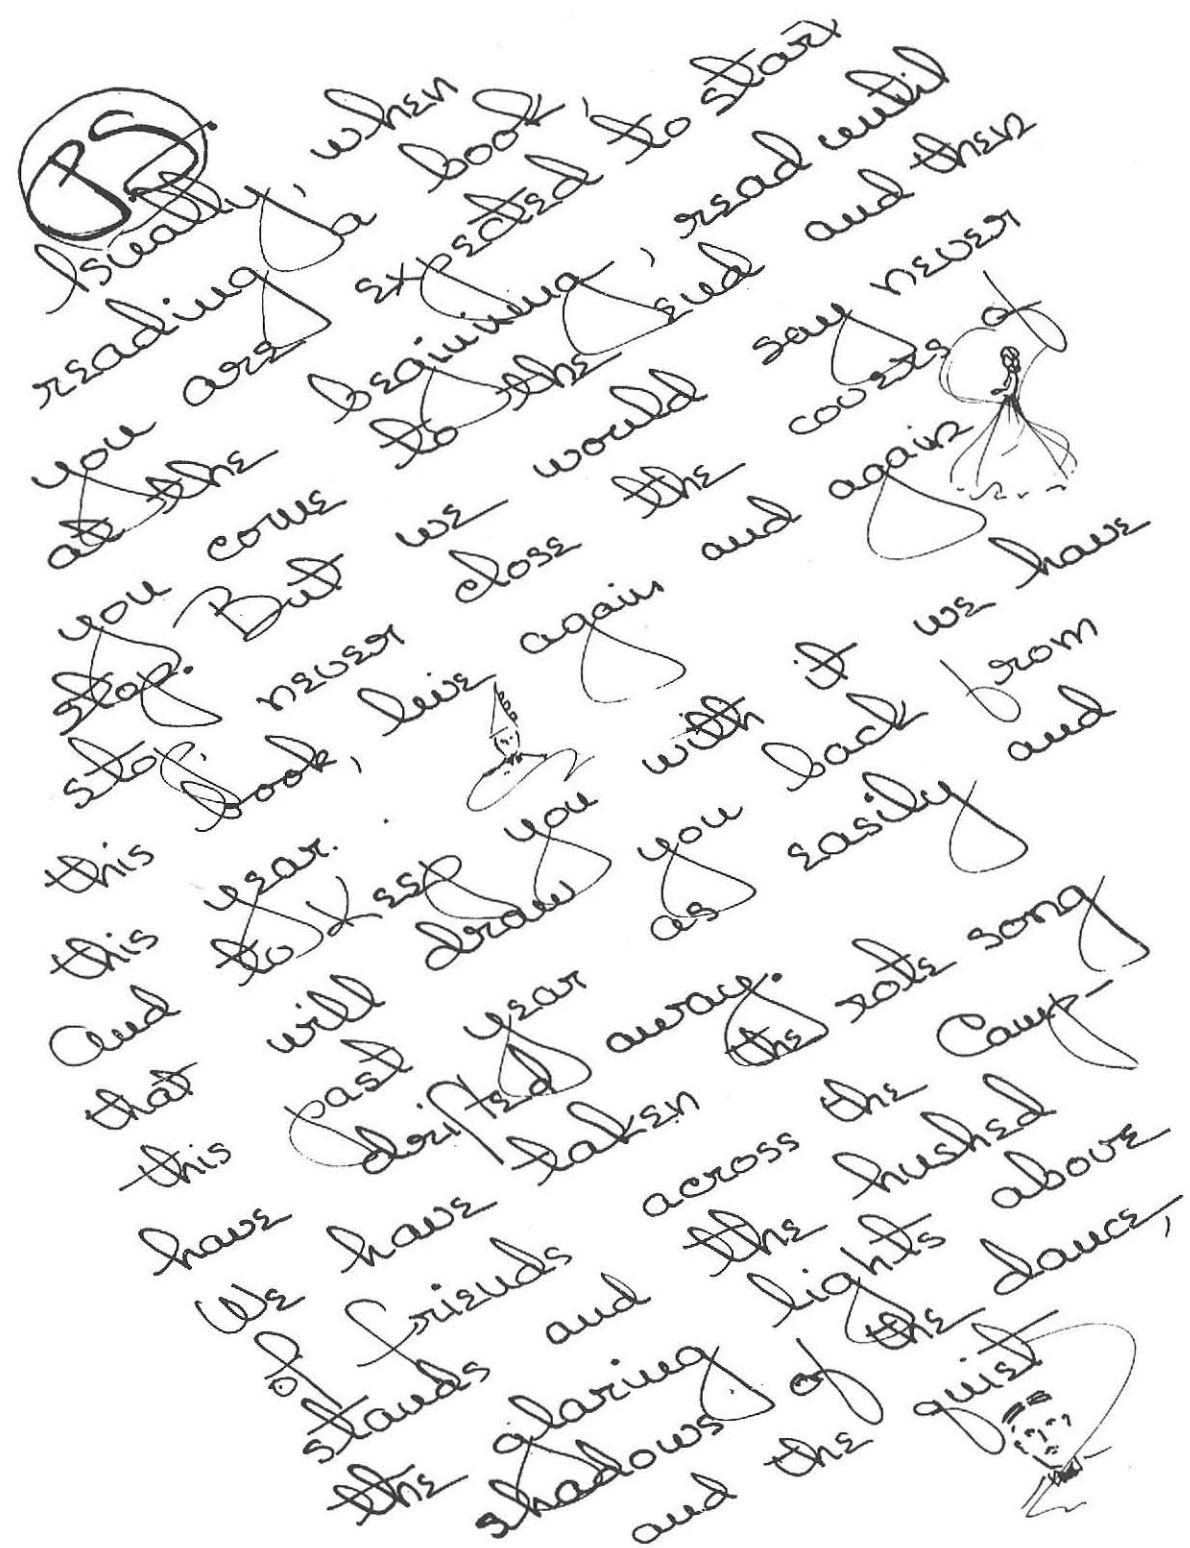 PS
Usually, when
reading a book,
you are expected to start
at the beginning, read until
you come to the end and then
stop. But we would say never
stop, never close the covers of
this book, live again and again
this year.
And to keep you with it we have
that will draw you back from
this past year as easily and
have drifted away.
We have taken the rote song
of friends across the Camp-
stands and the hushed
the glaring lights above
shadows of the dance,
and the quiet